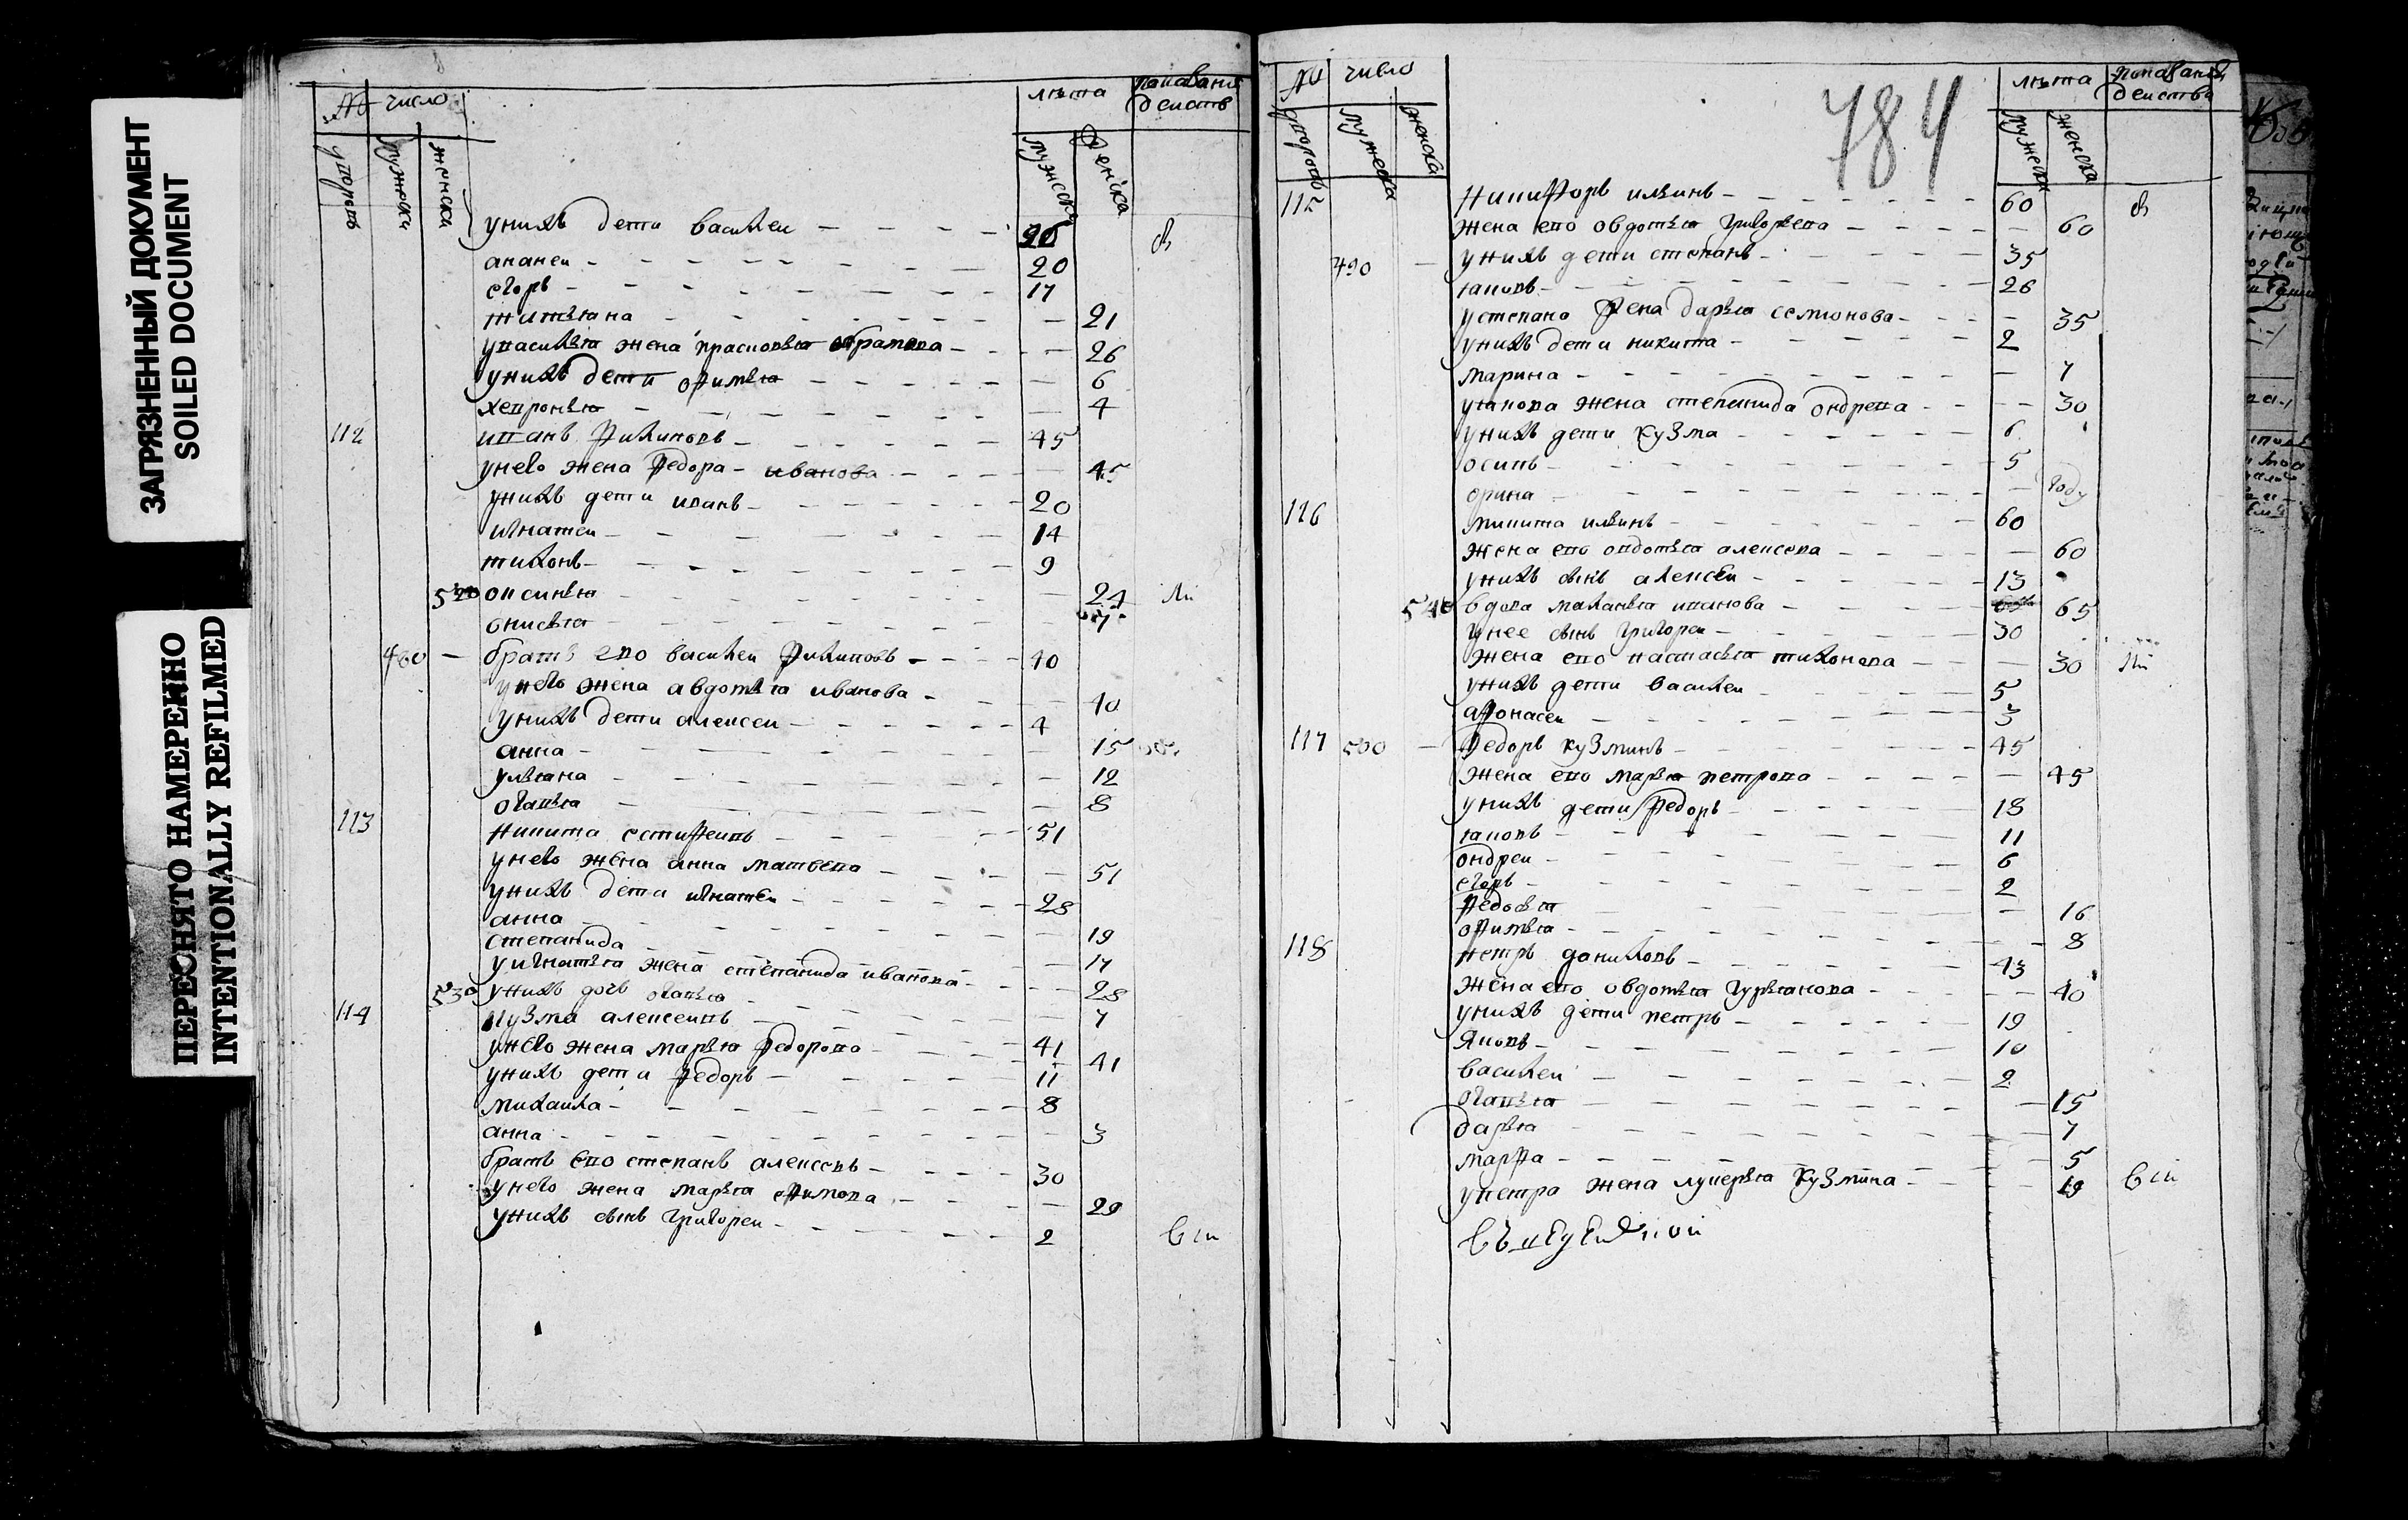 ЗАГРЯЗНЕННЫЙ ДОКУМЕНТ
SOILED DOCUMENT
ПЕРЕСНЯТО НАМЕРЕННО
INTENTIONALLY REFILMED
№ число лѣта показания действ
дворовъ мужска женска мужска женска
у нихъ дети василеи 26
ананеи 20
егоръ 17
титьяна 21
у василья жена прасковья абрамова 26
у нихъ дети офимья 6
хевронья 4
112 иванъ филиповъ 45
у него жена федора иванова 45
у нихъ дети иванъ 20
игнатеи 14
тихонъ 9
520 оксинья 24
онисья 7
480 братъ ево василеи филиповъ 40
у него жена авдотья иванова 40
у нихъ дети алексеи 4
анна 15
ульяна 12
огапья 8
113 никита естифеивъ 51
у него жена анна матвева 51
у нихъ дети игнатеи 28
анна 19
степанида 17
у игнатья жена степанида иванова 28
530 у нихъ дочь огапья 7
114 кузма алексеивъ 41
у него жена марья федорова 41
у нихъ дети федоръ 11
михаила 8
анна 3
братъ ево степанъ алексевъ 30
у него жена марья ефимова 29
у нихъ сынъ григореи 2
784
№ число лѣта показания действа
дворовъ мужска женска мужска женска
115 никифоръ ильинъ 60
жена ево овдотья григорьева 60
490 у нихъ дети степанъ 35
яковъ 26
у степана жена дарья семионова 35
у нихъ дети никита 2
марина 7
у якова жена степанида ондрева 30
у нихъ дети кузма 6
осипъ 5
орина году
116 никита ильинъ 60
жена ево овдотья алексева 60
у нихъ сынъ алексеи 13
540 вдова маланья иванова 65
у нее сынъ григореи 30
жена ево настасья тихонова 30
у нихъ дети василеи 5
афонасеи 3
117 500 федоръ кузминъ 45
жена ево марья петрова 45
у нихъ дети федоръ 18
яковъ 11
ондреи 6
егоръ 2
федосья 16
офимья 8
118 петръ даниловъ 43
жена ево овдотья гурьянова 40
у нихъ дети петръ 19
яковъ 10
василеи 2
огапья 15
дарья 7
марфа 5
у петра жена лукерья кузмина 19